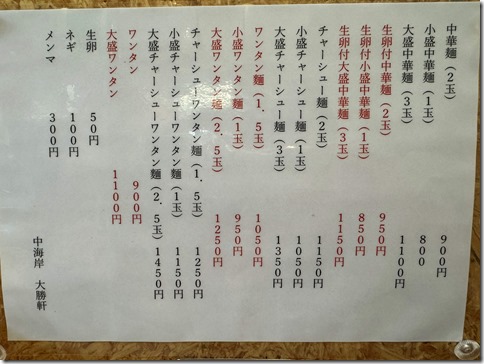 中華麺（2玉） 900円
小盛中華麺（1玉） 800
大盛中華麺（3玉） 1100円
生卵付中華麺（2玉） 950円
生卵付小盛中華麺（1玉） 850円
生卵付大盛中華麺（3玉） 1150円
チャーシュー麺（2玉） 1150円
小盛チャーシュー麺（1玉） 1050円
大盛チャーシュー麺（3玉） 1350円
ワンタン麺（1．5玉） 1050円
小盛ワンタン麺（1玉） 950円
大盛ワンタン麺（2．5玉） 1250円
チャーシューワンタン麺（1．5玉） 1250円
小盛チャーシューワンタン麺（1玉） 1150円
大盛チャーシューワンタン麺（2．5玉） 1450円
ワンタン 900円
大盛ワンタン 1100円
生卵 50円
ネギ 100円
メンマ 300円
中海岸 大勝軒